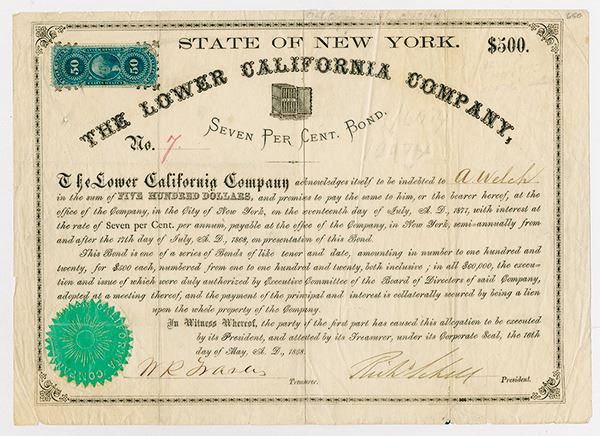 STATE OF NEW YORK. $500.
50 50
THE LOWER CALIFORNIA COMPANY,
No. 7
SEVEN PER CENT. BOND.
The Lower California Company acknowledges itself to be indebted to A Welch
in the sum of FIVE HUNDRED DOLLARS, and promises to pay the same to him, or the bearer hereof, at the
office of the Company, in the City of New York, on the seventeenth day of July, A. D., 1877, with interest at
the rate of Seven per Cent. per annum, payable at the office of the Company, in New York, semi-annually from
and after the 17th day of July, A. D., 1868, on presentation of this Bond.
This Bond is one of a series of Bonds of like tenor and date, amounting in number to one hundred and
twenty, for $500 each, numbered from one to one hundred and twenty, both inclusive; in all $60,000, the execu-
tion and issue of which were duly authorized by Executive Committee of the Board of Directors of said Company,
adopted at a meeting thereof, and the payment of the principal and interest is collaterally secured by being a lien
upon the whole property of the Company.
In Witness Whereof, the party of the first part has caused this allegation to be executed
by its President, and attested by its Treasurer, under its Corporate Seal, the 16th
day of May, A. D., 1868.
Treasurer. President.